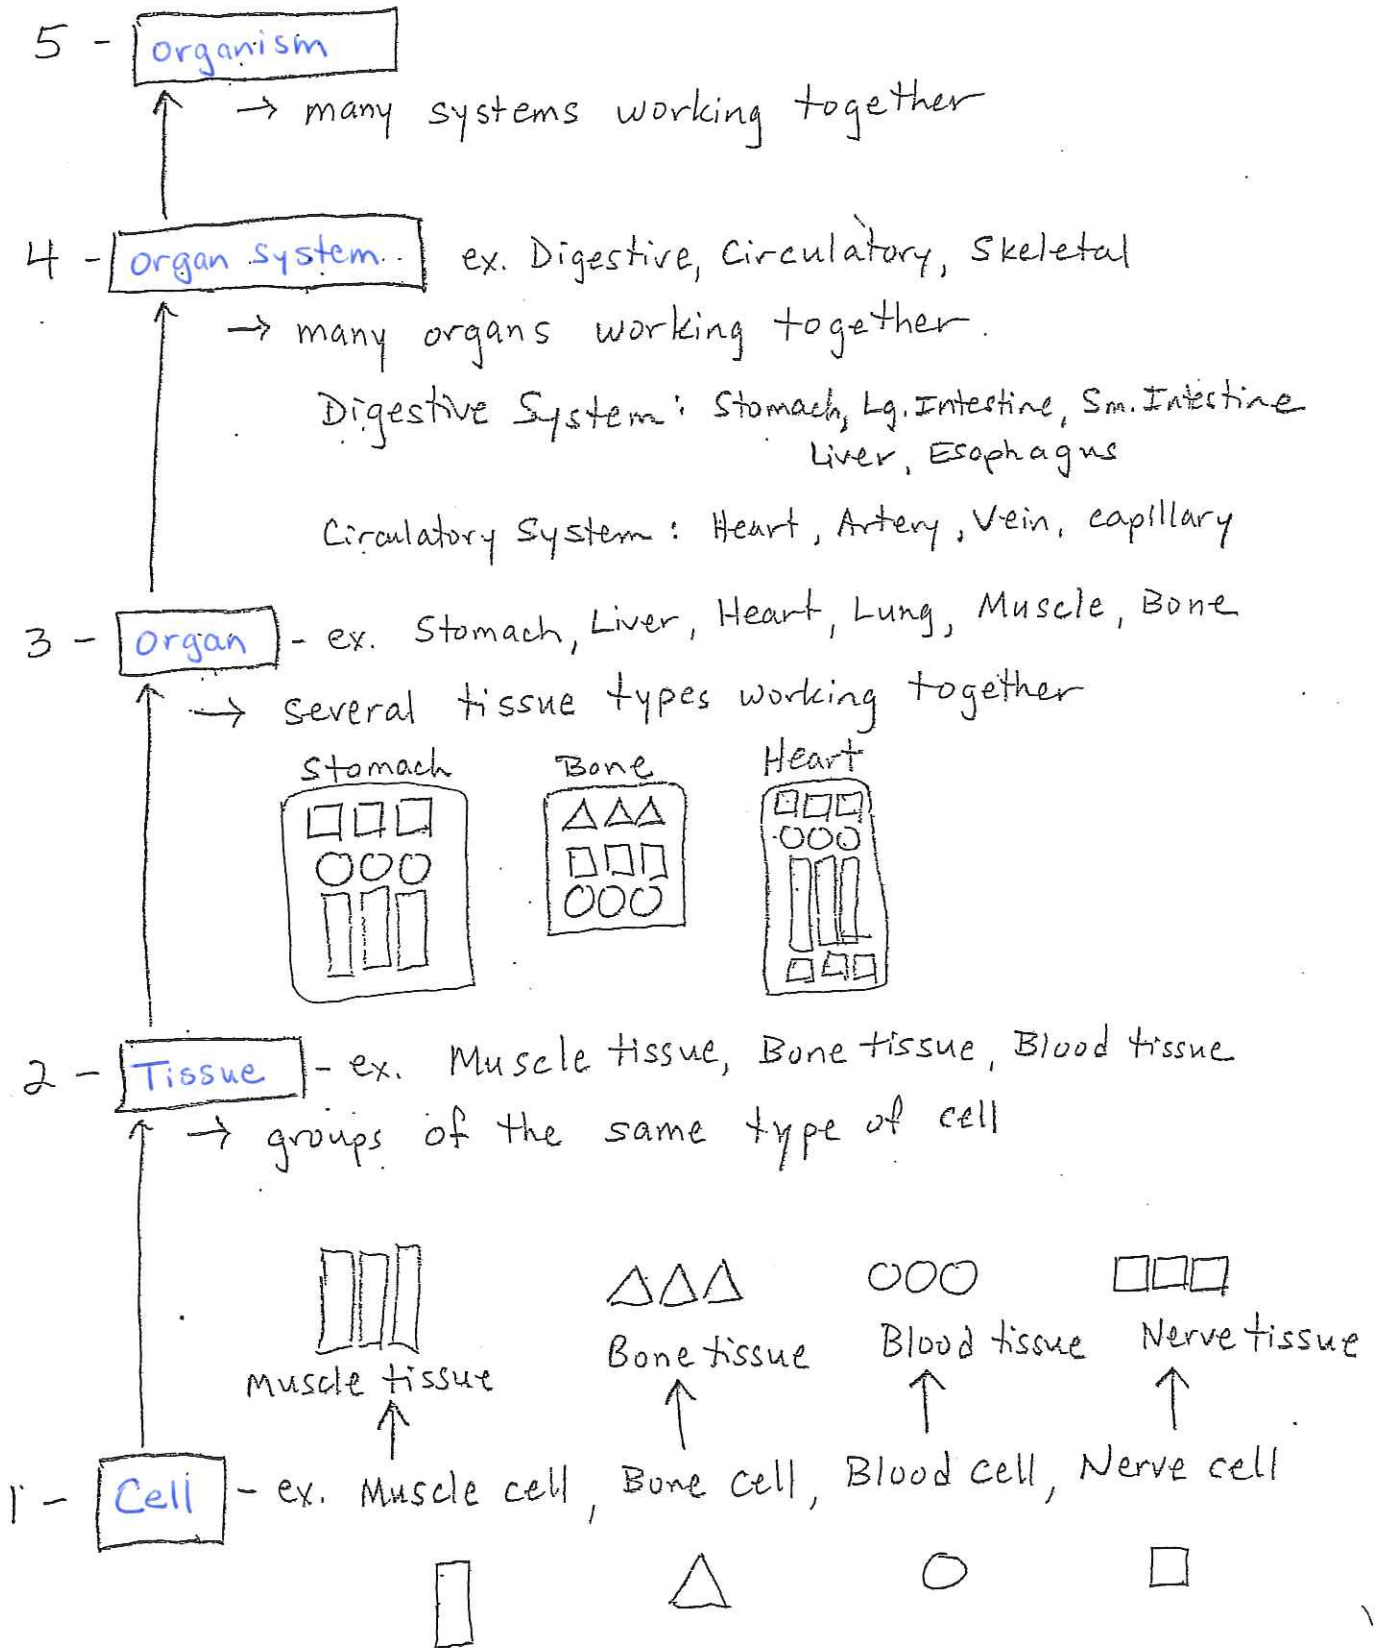 5 - Organism
→ many systems working together
4 - Organ System ex. Digestive, Circulatory, Skeletal
→ many organs working together.
Digestive System: Stomach, Lg. Intestine, Sm. Intestine
Liver, Esophagus
Circulatory System: Heart, Artery, Vein, capillary
3 - Organ - ex. Stomach, Liver, Heart, Lung, Muscle, Bone
→ several tissue types working together
Stomach Bone Heart
2 - Tissue - ex. Muscle tissue, Bone tissue, Blood tissue
→ groups of the same type of cell
Muscle tissue Bone tissue Blood tissue Nerve tissue
1 - Cell - ex. Muscle cell, Bone cell, Blood cell, Nerve cell